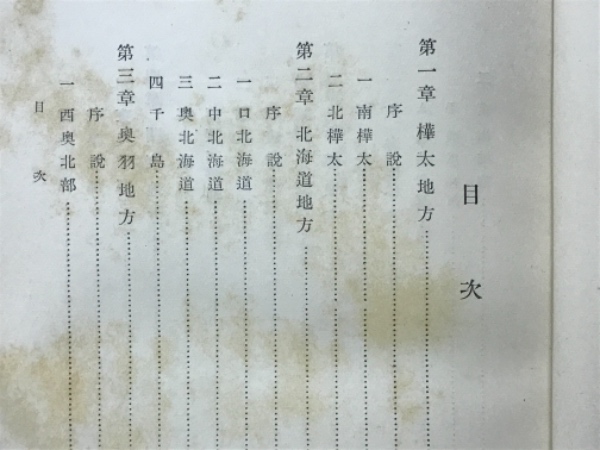 目次
第一章 樺太地方
序說
一 南樺太
二 北樺太
第二章 北海道地方
序說
一 口北海道
二 中北海道
三 奥北海道
四 千島
第三章 奥羽地方
序說
一 西奥北部
目次